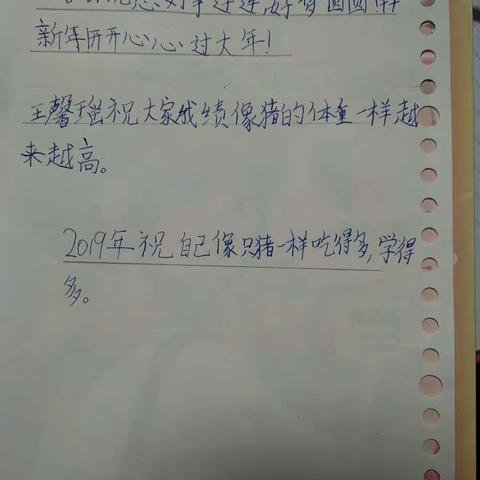 好梦圆圆
新年开开心心过大年!
王馨瑶祝大家成绩像猪的体重一样越
来越高。
2019年祝自己像只猪一样吃得多,学得
多。